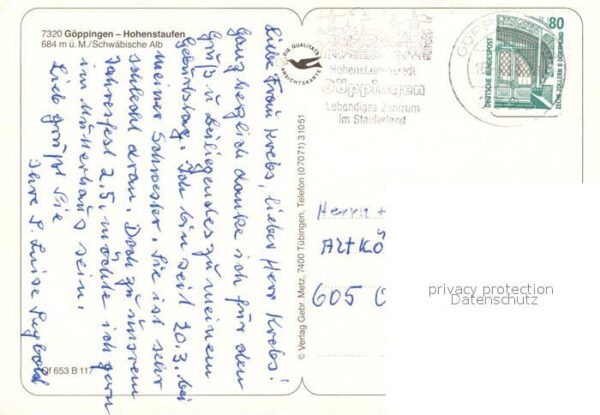 7320 Göppingen – Hohenstaufen
684 m ü. M./Schwäbische Alb
Liebe Frau Krebs, lieber Herr Krebs!
Ganz herzlich danke ich für den
Gruß u. Beiliegendes zu meinem
Geburtstag. Ich bin seit 20.3. bei
meiner Schwester. Sie ist sehr
schlecht dran. Doch zu unserem
Jahresfest 2.5. möchte ich gern
im Mutterhaus sein.
Lieb grüßt Sie
Ihre S. Luise
Gf 653 B 117
DIE QUALITÄTS
ANSICHTSKARTE
© Verlag Gebr. Metz, 7400 Tübingen, Telefon (07071) 31051
Hohenstaufenstadt
Göppingen
Lebendiges Zentrum
im Stauferland
GÖPP
80
DEUTSCHE BUNDESPOST
ZECHE ZOLLERN II DORTMUND
Herrn +
Altkö
605 O
privacy protection
Datenschutz